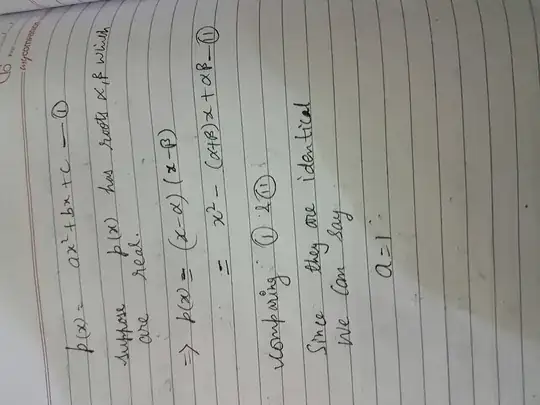 p(x) = ax² + bx + c — ①
suppose p(x) has roots α, β which
are real.
⇒ p(x) = (x-α) (x-β)
= x² - (α+β)x + αβ — ⑪
comparing ① & ⑪
Since they are identical
We can say
a = 1